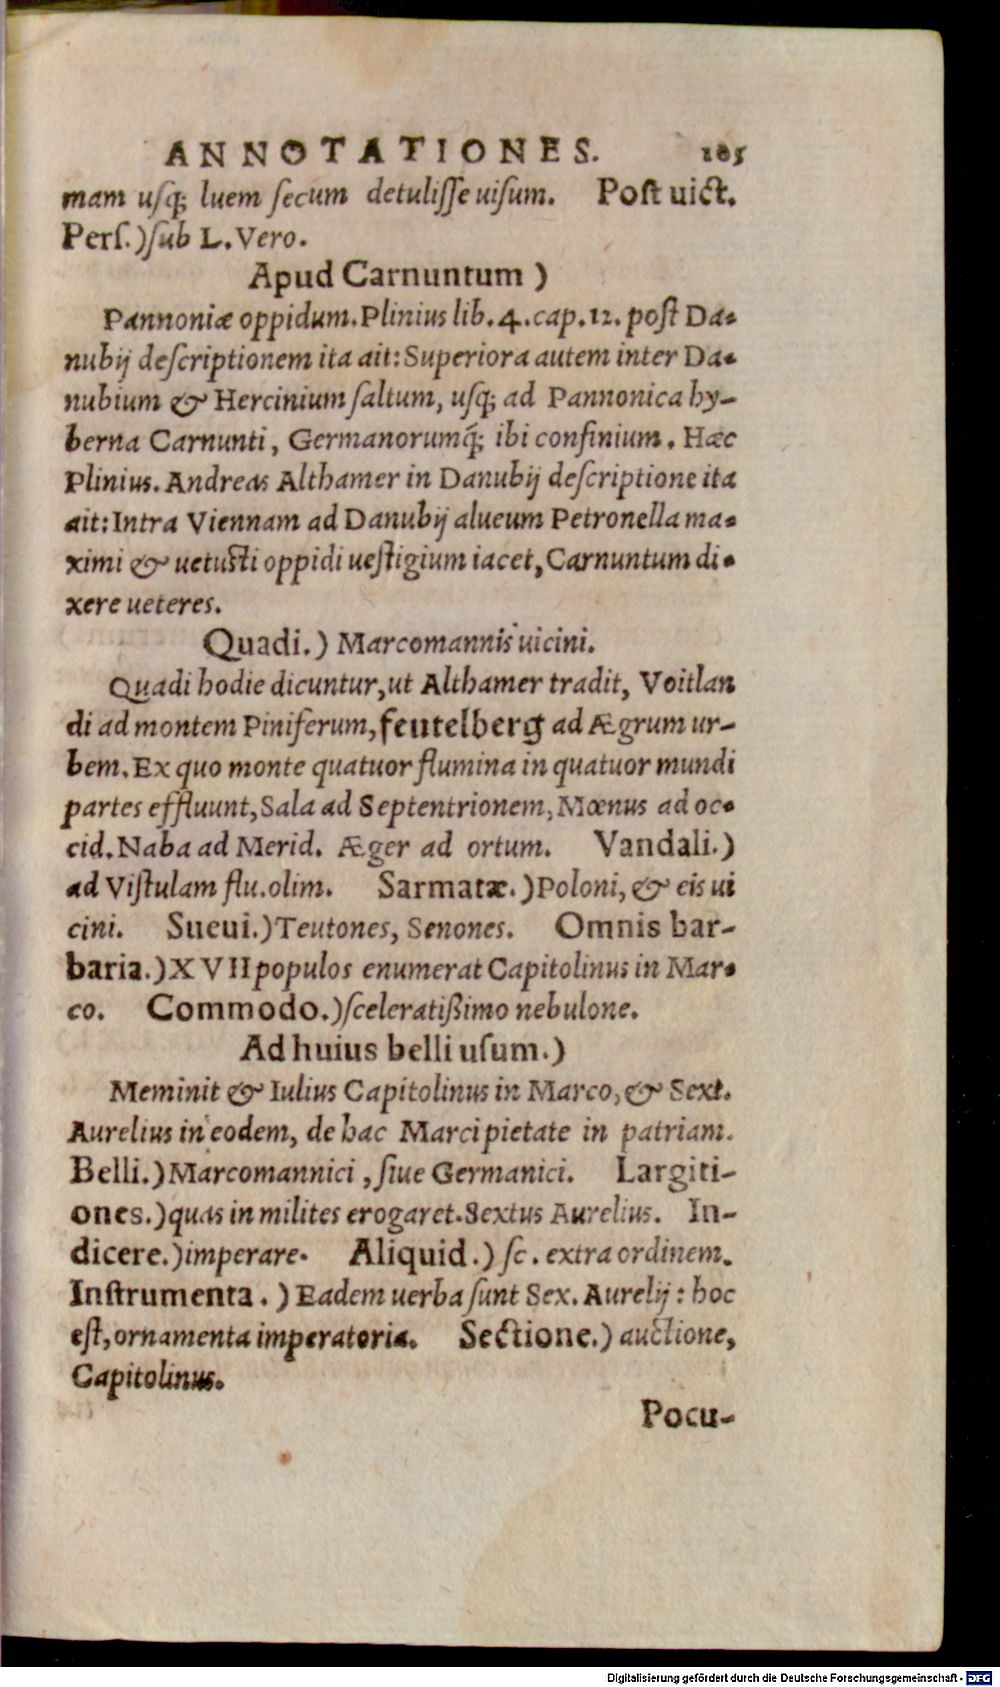 ANNOTATIONES. 185
mam uſq; luem ſecum detuliſſe uiſum. Poſt uict.
Perſ.)ſub L. Vero.
Apud Carnuntum )
Pannoniæ oppidum. Plinius lib. 4. cap. 12. poſt Da-
nubij deſcriptionem ita ait: Superiora autem inter Da-
nubium & Hercinium ſaltum, uſq; ad Pannonica hy-
berna Carnunti, Germanorumq́; ibi confinium. Hæc
Plinius. Andreas Althamer in Danubij deſcriptione ita
ait: Intra Viennam ad Danubij alueum Petronella ma-
ximi & uetuſti oppidi ueſtigium iacet, Carnuntum di-
xere ueteres.
Quadi.) Marcomannis uicini.
Quadi hodie dicuntur, ut Althamer tradit, Voitlan
di ad montem Piniferum, feutelberg ad Ægrum ur-
bem. Ex quo monte quatuor flumina in quatuor mundi
partes effluunt, Sala ad Septentrionem, Mœnus ad oc-
cid. Naba ad Merid. Æger ad ortum. Vandali.)
ad Viſtulam flu. olim. Sarmatæ.) Poloni, & eis ui
cini. Sueui.) Teutones, Senones. Omnis bar-
baria.) XVII populos enumerat Capitolinus in Mar-
co. Commodo.) ſceleratißimo nebulone.
Ad huius belli uſum.)
Meminit & Iulius Capitolinus in Marco, & Sext.
Aurelius in eodem, de hac Marci pietate in patriam.
Belli.) Marcomannici, ſiue Germanici. Largiti-
ones.) quas in milites erogaret. Sextus Aurelius. In-
dicere.) imperare. Aliquid.) ſc. extra ordinem.
Inſtrumenta.) Eadem uerba ſunt Sex. Aurelij: hoc
eſt, ornamenta imperatoria. Sectione.) auctione,
Capitolinus.
Pocu-
Digitalisierung gefördert durch die Deutsche Forschungsgemeinschaft - DFG